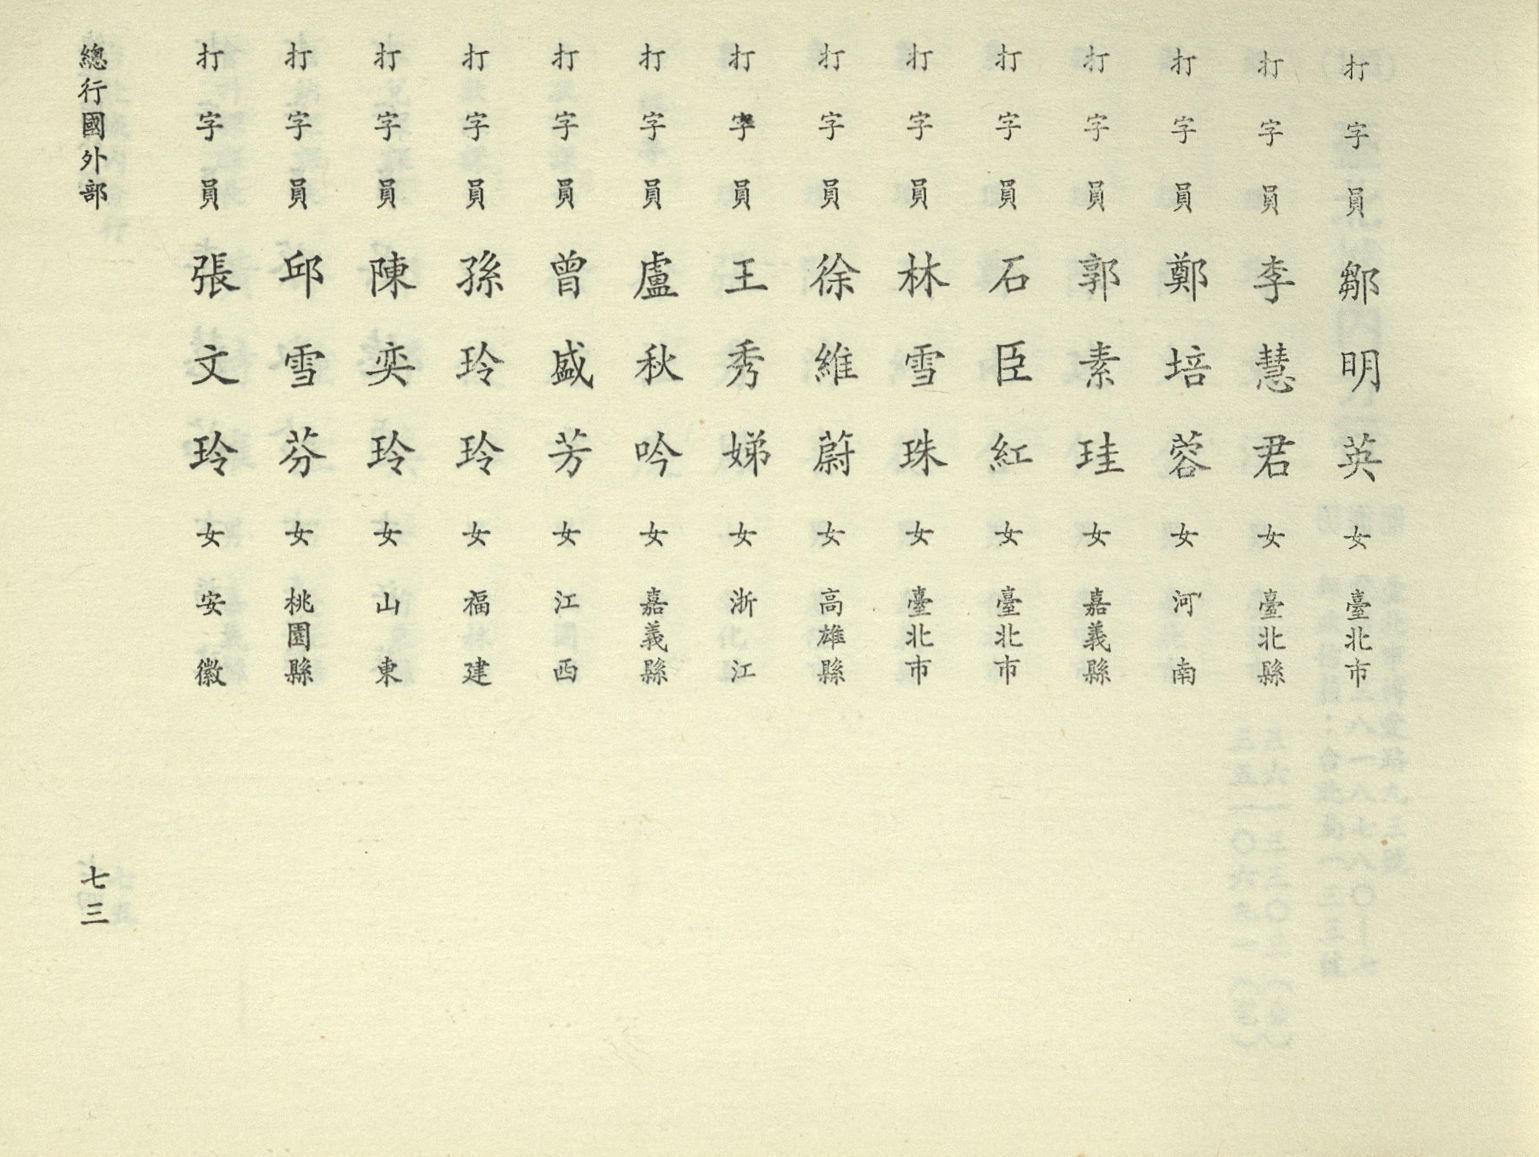 打字員 鄒明英 女 臺北市
打字員 李慧君 女 臺北縣
打字員 鄭培蓉 女 河南
打字員 郭素珪 女 嘉義縣
打字員 石臣紅 女 臺北市
打字員 林雪珠 女 臺北市
打字員 徐維蔚 女 高雄縣
打字員 王秀娣 女 浙江
打字員 盧秋吟 女 嘉義縣
打字員 曾盛芳 女 江西
打字員 孫玲玲 女 福建
打字員 陳奕玲 女 山東
打字員 邱雪芬 女 桃園縣
打字員 張文玲 女 安徽
總行國外部 七三